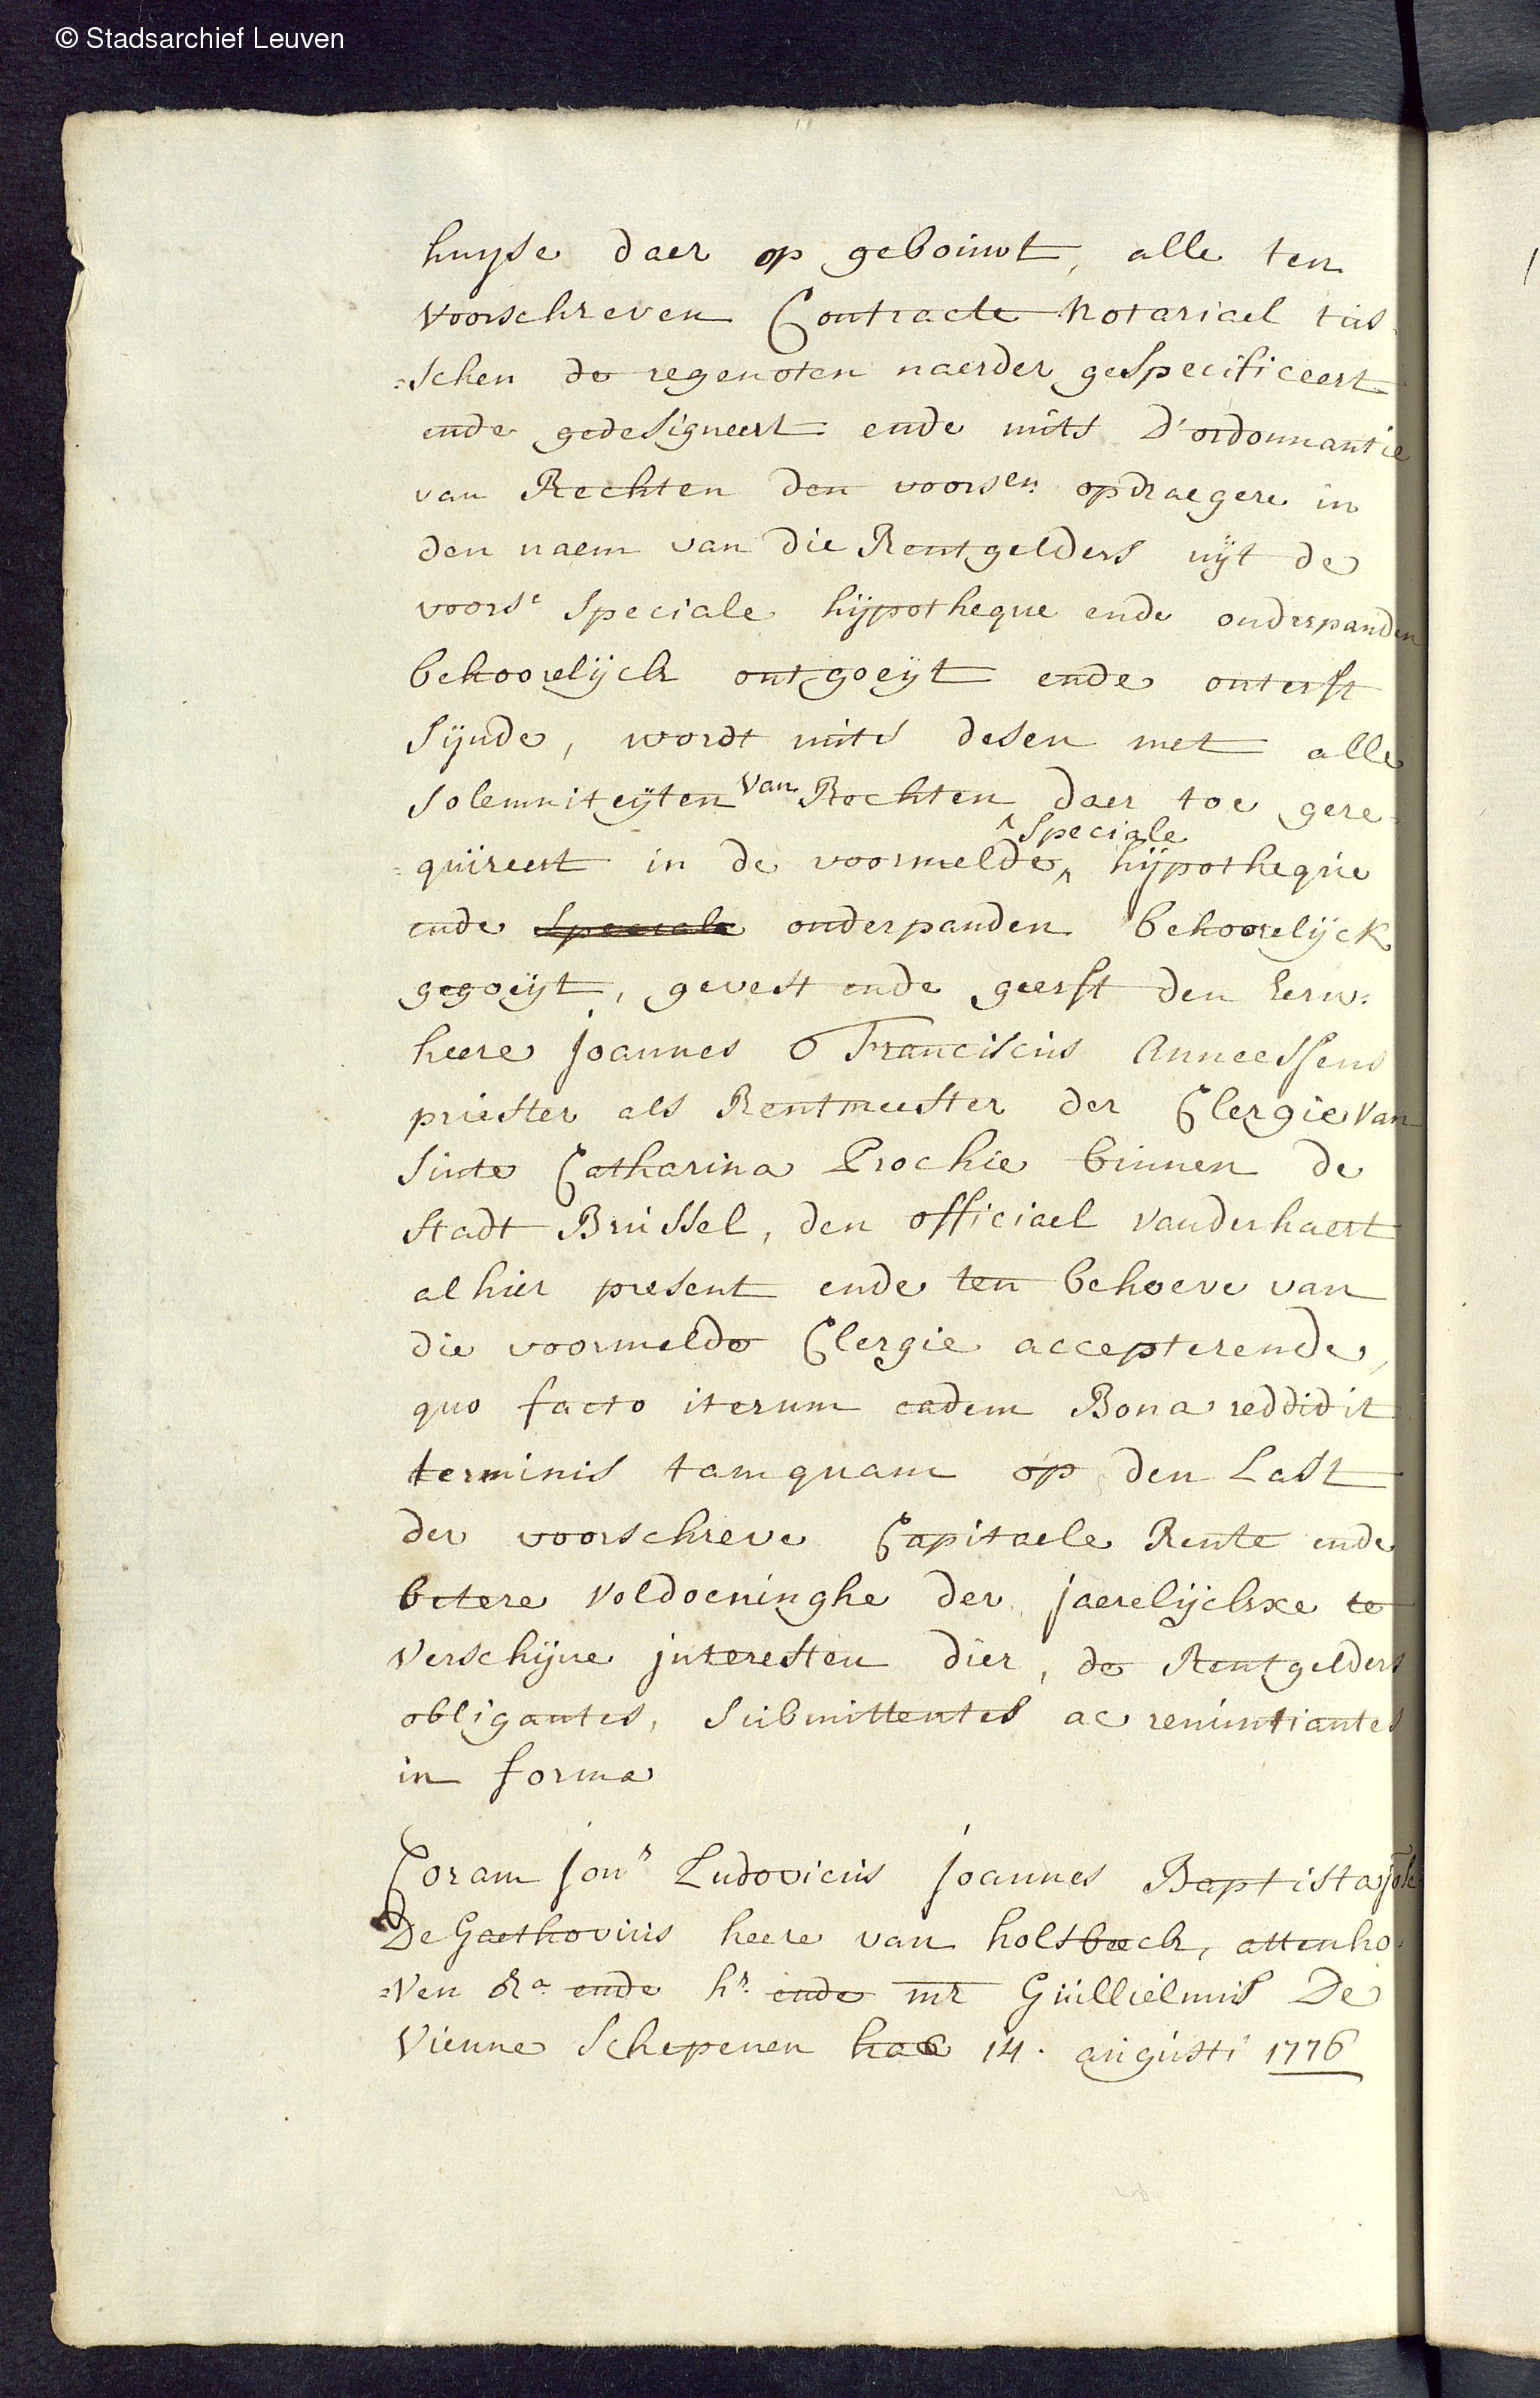 © Stadsarchief Leuven
huyse daer op geboúwt, alle ten
voorschreven Contracte notariael tús
=schen de regenoten naerder gespecificeert
ende gedesigneert ende mits d'ordonnantie
van Rechten den voorsen. opdraegere in
den naem van die Rentgelders uÿt de
voorse speciale hÿpotheque ende onderpanden
behoorelÿck ontgoeÿt ende onterft
sÿnde, wordt mits desen met alle
solemniteÿten van Rechten daer toe gere=
=quireert in de voormelde ^ speciale hÿpotheqúe
ende speciale onderpanden behoorelÿck
gegoeÿt, gevest ende geerft den Eerw:
heere joannes Franciscús Anneessens
priester als Rentmeester der Clergie van
sinte Catharina Prochie binnen de
stadt Brússel, den officiael vanderhaert
alhier present ende ten behoeve van
die voormelde Clergie accepterende,
quo facto iterum eadem Bona reddidit
terminis tamquam op den Last
der voorschreve Capitaele Rente ende
betere voldoeninghe der jaerelÿckxe te
verschÿne jnteresten dier, de Rentgelders
obligantes, súbmittentes ac renúntiantes
in forma
Coram jonr Ludovicús joannes Baptista
De Gaethoviús heere van holsbeeck, attenho=
=ven &a ende hr. ende mr Gúilliélmús De
Vienne schepenen hac 14. aúgústi 1776